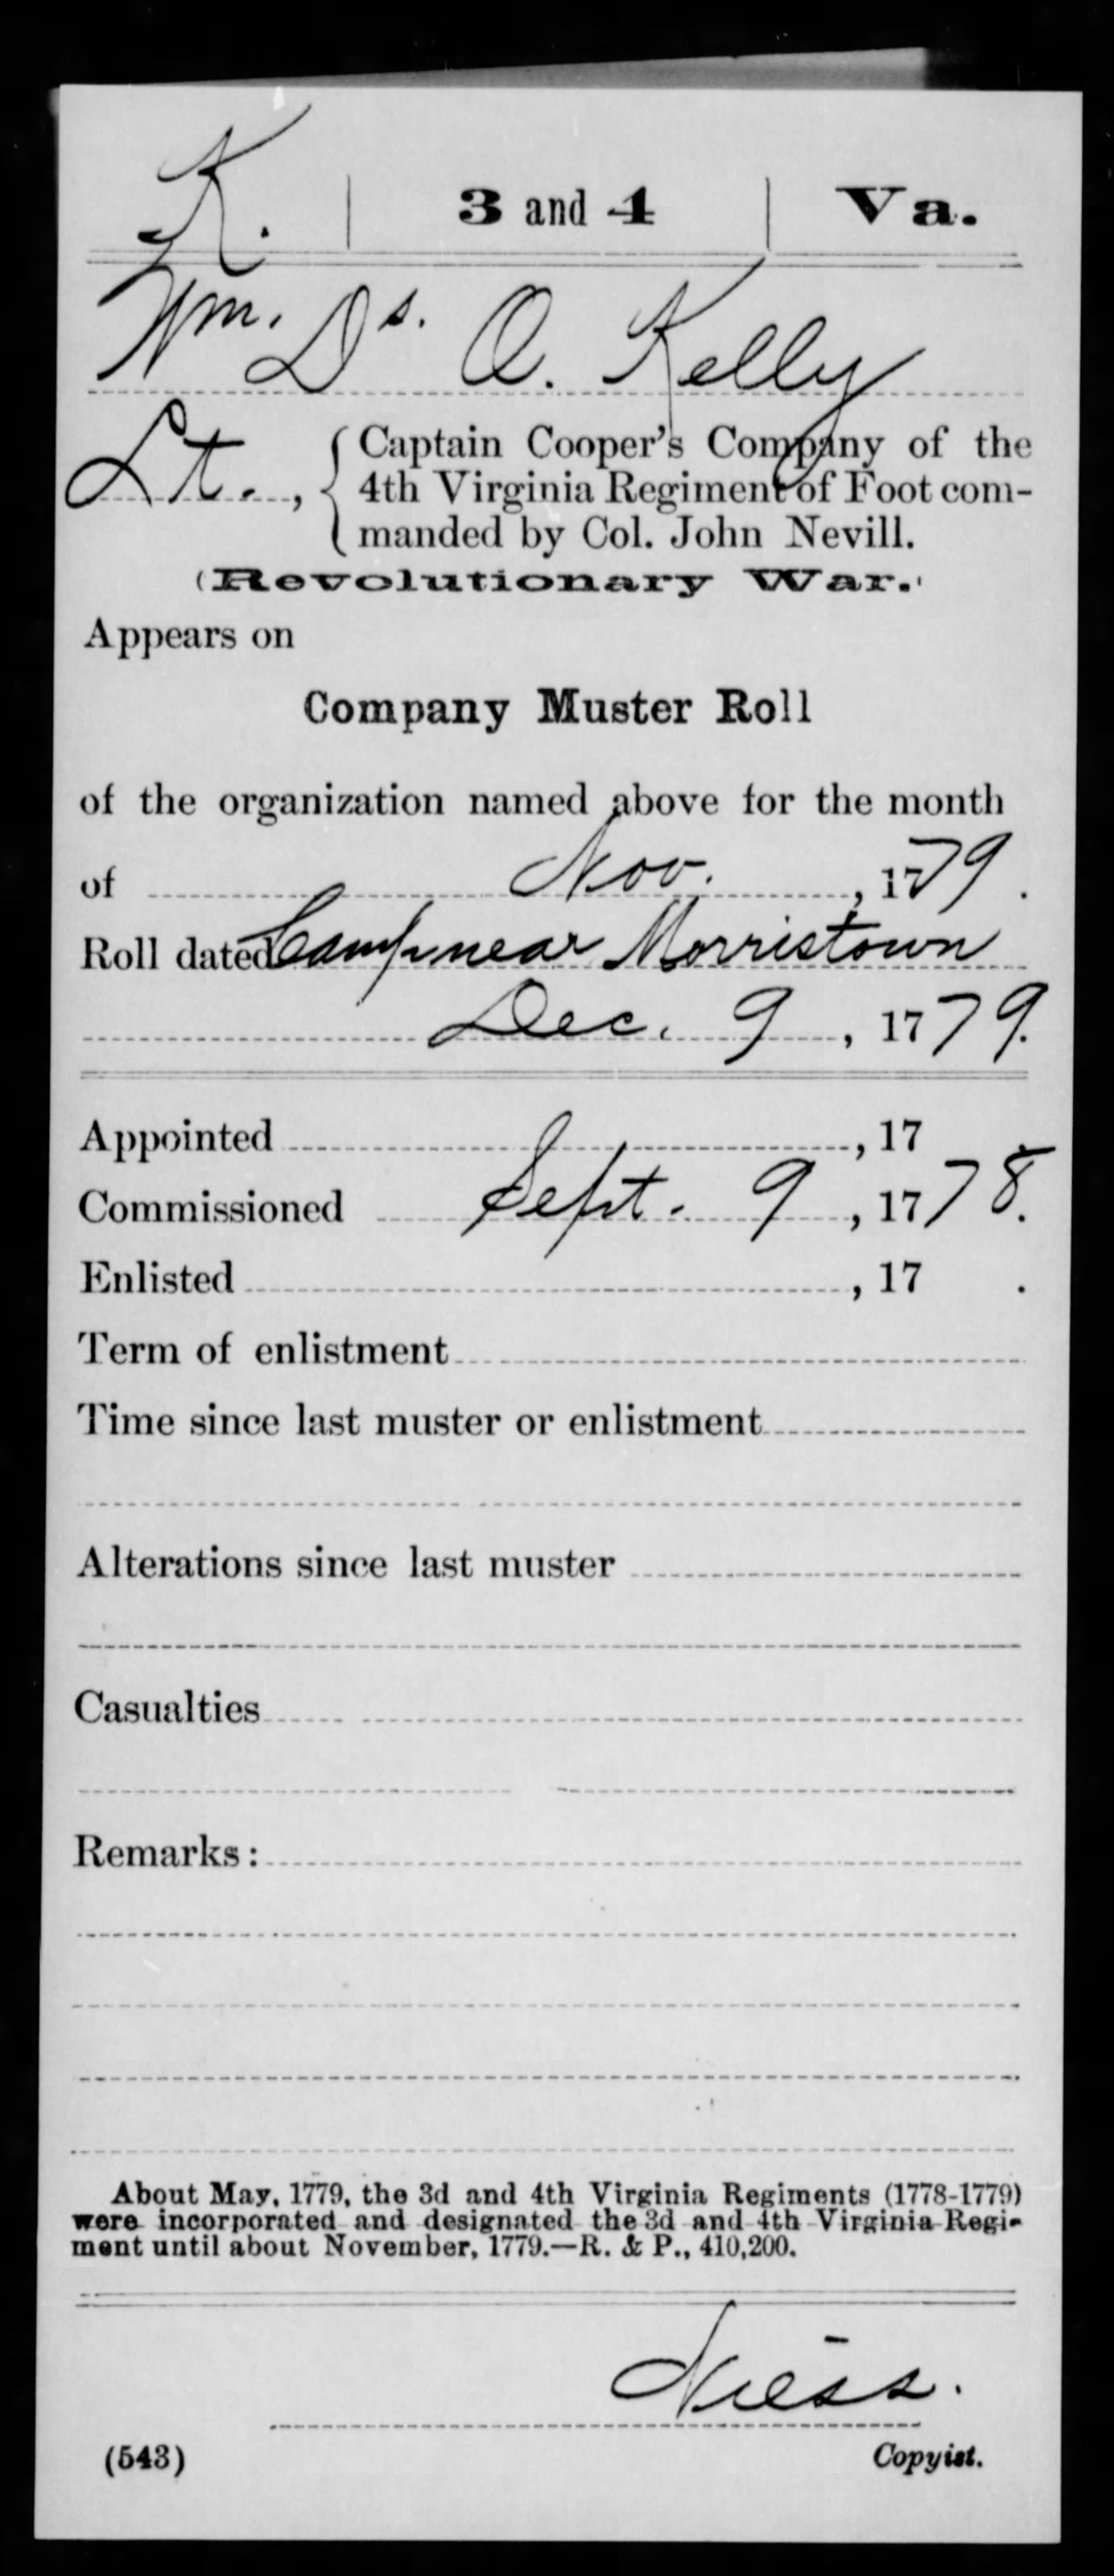 K. | 3 and 4 | Va.
Wm. Ds. O. Kelly
Lt., { Captain Cooper's Company of the
4th Virginia Regiment of Foot com-
manded by Col. John Nevill.
(Revolutionary War.)
Appears on
Company Muster Roll
of the organization named above for the month
of Nov., 1779.
Roll dated Camp near Morristown
Dec. 9, 1779.
Appointed , 17
Commissioned Sept. 9, 1778.
Enlisted , 17 .
Term of enlistment
Time since last muster or enlistment
Alterations since last muster
Casualties
Remarks:
About May, 1779, the 3d and 4th Virginia Regiments (1778-1779)
were incorporated and designated the 3d and 4th Virginia Regi-
ment until about November, 1779.—R. & P., 410,200.
Niess.
(543) Copyist.